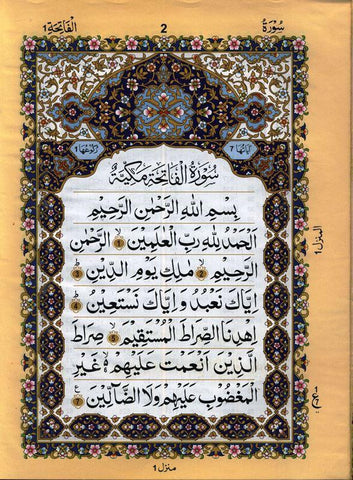 سُوْرَةُ 2 اَلْفَاتِحَة 1
اٰيَاتُهَا 7 رُكُوْعُهَا 1
سُوْرَةُ الْفَاتِحَةِ مَكِّيَّةٌ
بِسْمِ اللهِ الرَّحْمٰنِ الرَّحِيْمِ
اَلْحَمْدُ لِلّٰهِ رَبِّ الْعٰلَمِيْنَ ۙ‏ 1 الرَّحْمٰنِ
الرَّحِيْمِ ۙ‏ 2 مٰلِكِ يَوْمِ الدِّيْنِ ؕ‏ 3
اِيَّاكَ نَعْبُدُ وَاِيَّاكَ نَسْتَعِيْنُ ؕ‏ 4
اِهْدِنَا الصِّرَاطَ الْمُسْتَقِيْمَ ۙ‏ 5 صِرَاطَ
الَّذِيْنَ اَنْعَمْتَ عَلَيْهِمْ ۙ 6 غَيْرِ
الْمَغْضُوْبِ عَلَيْهِمْ وَلَا الضَّآلِّيْنَ 7
المنزل 1
منزل 1